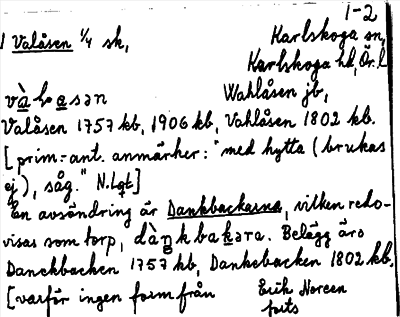 1-2
1 Valåsen 1/4 sk, Karlskoga sn,
Karlskoga hd, Ör. l
vàlåsən Wahlåsen jb,
Valåsen 1757 kb, 1906 kb, Vahlåsen 1802 kb.
[prim.-ant. anmärker: "med hytta (brukas
ej), såg." N. Lgt]
En avsöndring är Dankbackarna, vilken redo-
visas som torp, dàŋkbakara. Belägg äro
Danckbacken 1757 kb, Dankebacken 1802 kb,
[varför ingen form från Erik Noreen
forts